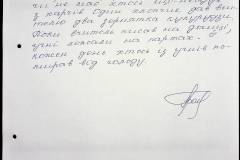 чи не має хтось
з харчів. Один хлопчик дав вчи-
телю два зернятка кукурудзи.
Поки вчитель писав на дошці,
учні лежали на партах.
Кожен день хтось із учнів по-
мирав від голоду.